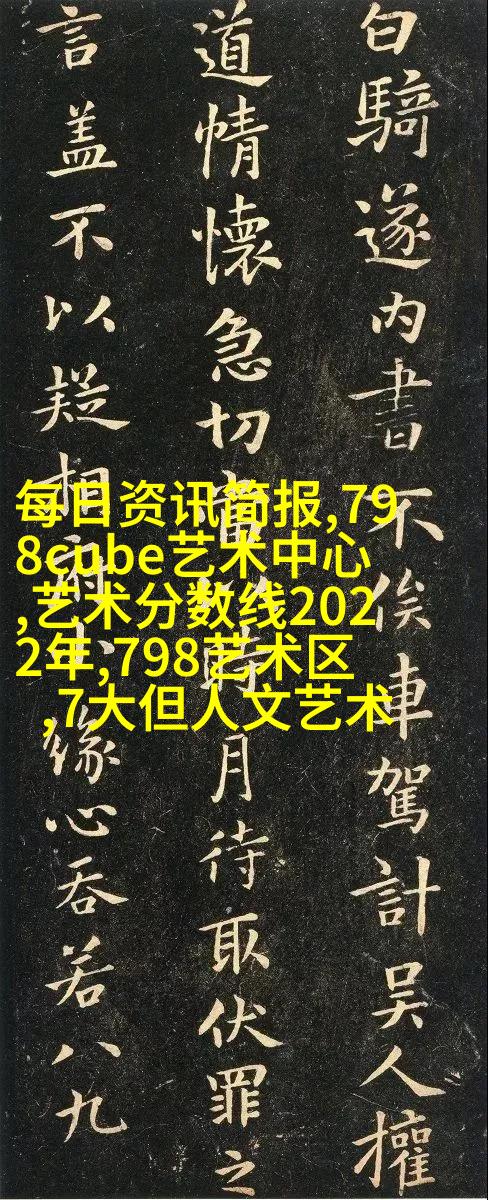 白騎遂内書不俟車駕計吳人權
道情懷急切當時月待取伏罪之
言盖不以疑相緣心吞若八九
每日资讯简报,79
8cube艺术中心
,艺术分数线202
2年,798艺术区
,7大但人文艺术